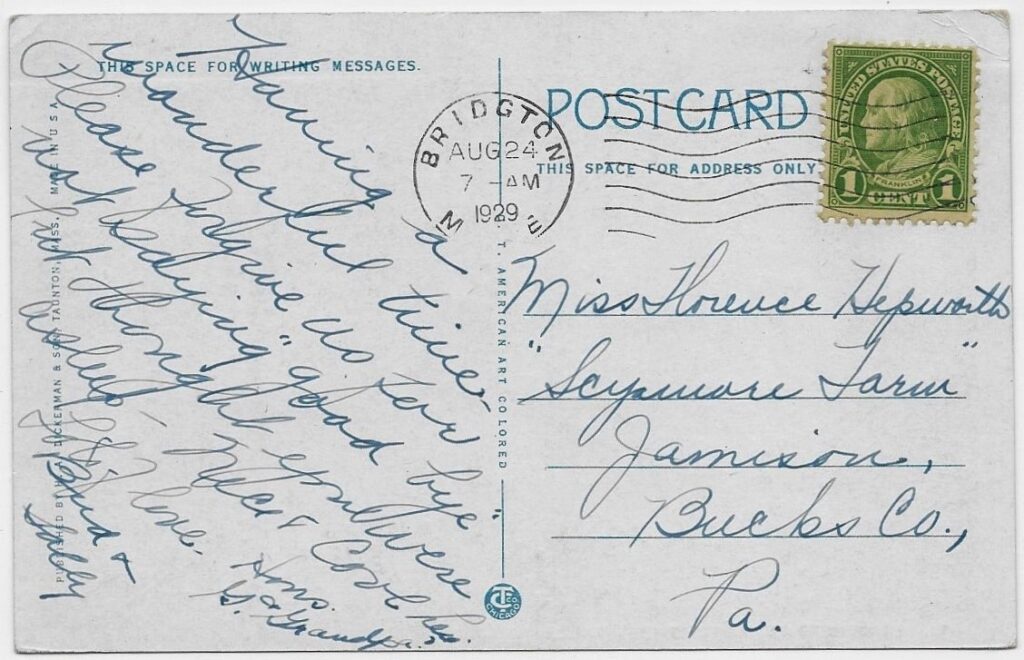 THIS SPACE FOR WRITING MESSAGES.
Having a
wonderful time.
Please forgive us for
not saying "good bye"
but thought you were
asleep. Nice & Cool
love.
&
G. & Grandpa.
PUBLISHED BY DICKERMAN & SON, TAUNTON, MASS. MADE IN U.S.A.
C. T. AMERICAN ART COLORED
CHICAGO
POST CARD
THIS SPACE FOR ADDRESS ONLY
BRIDGTON
AUG 24
7 - AM
1929
M E
UNITED STATES POSTAGE
FRANKLIN
1 CENT 1
Miss Florence Hepworth
"Scyamore Farm"
Jamison,
Bucks Co.,
Pa.